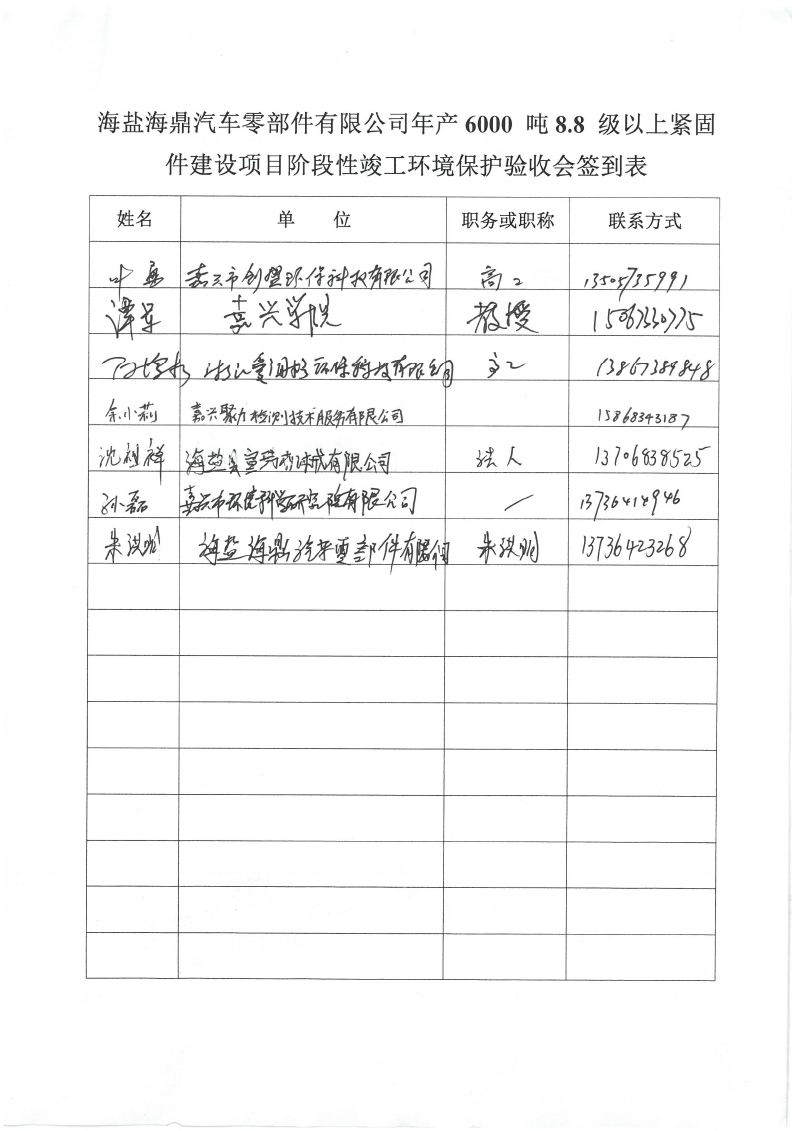 海盐海鼎汽车零部件有限公司年产 6000 吨 8.8 级以上紧固
件建设项目阶段性竣工环境保护验收会签到表
姓名 单 位 职务或职称 联系方式
叶 嘉兴市创望环保科技有限公司 高工 13505735991
谭军 嘉兴学院 教授 15067330775
浙江爱闻格环保科技有限公司 高工 13867389848
余小莉 嘉兴聚力检测技术服务有限公司 15868343187
沈祖祥 海盐县宣 机械有限公司 法人 13706838525
孙磊 嘉兴市环境科学研究院有限公司 / 13736414946
朱洪明 海盐海鼎汽车零部件有限公司 朱洪明 13736423268